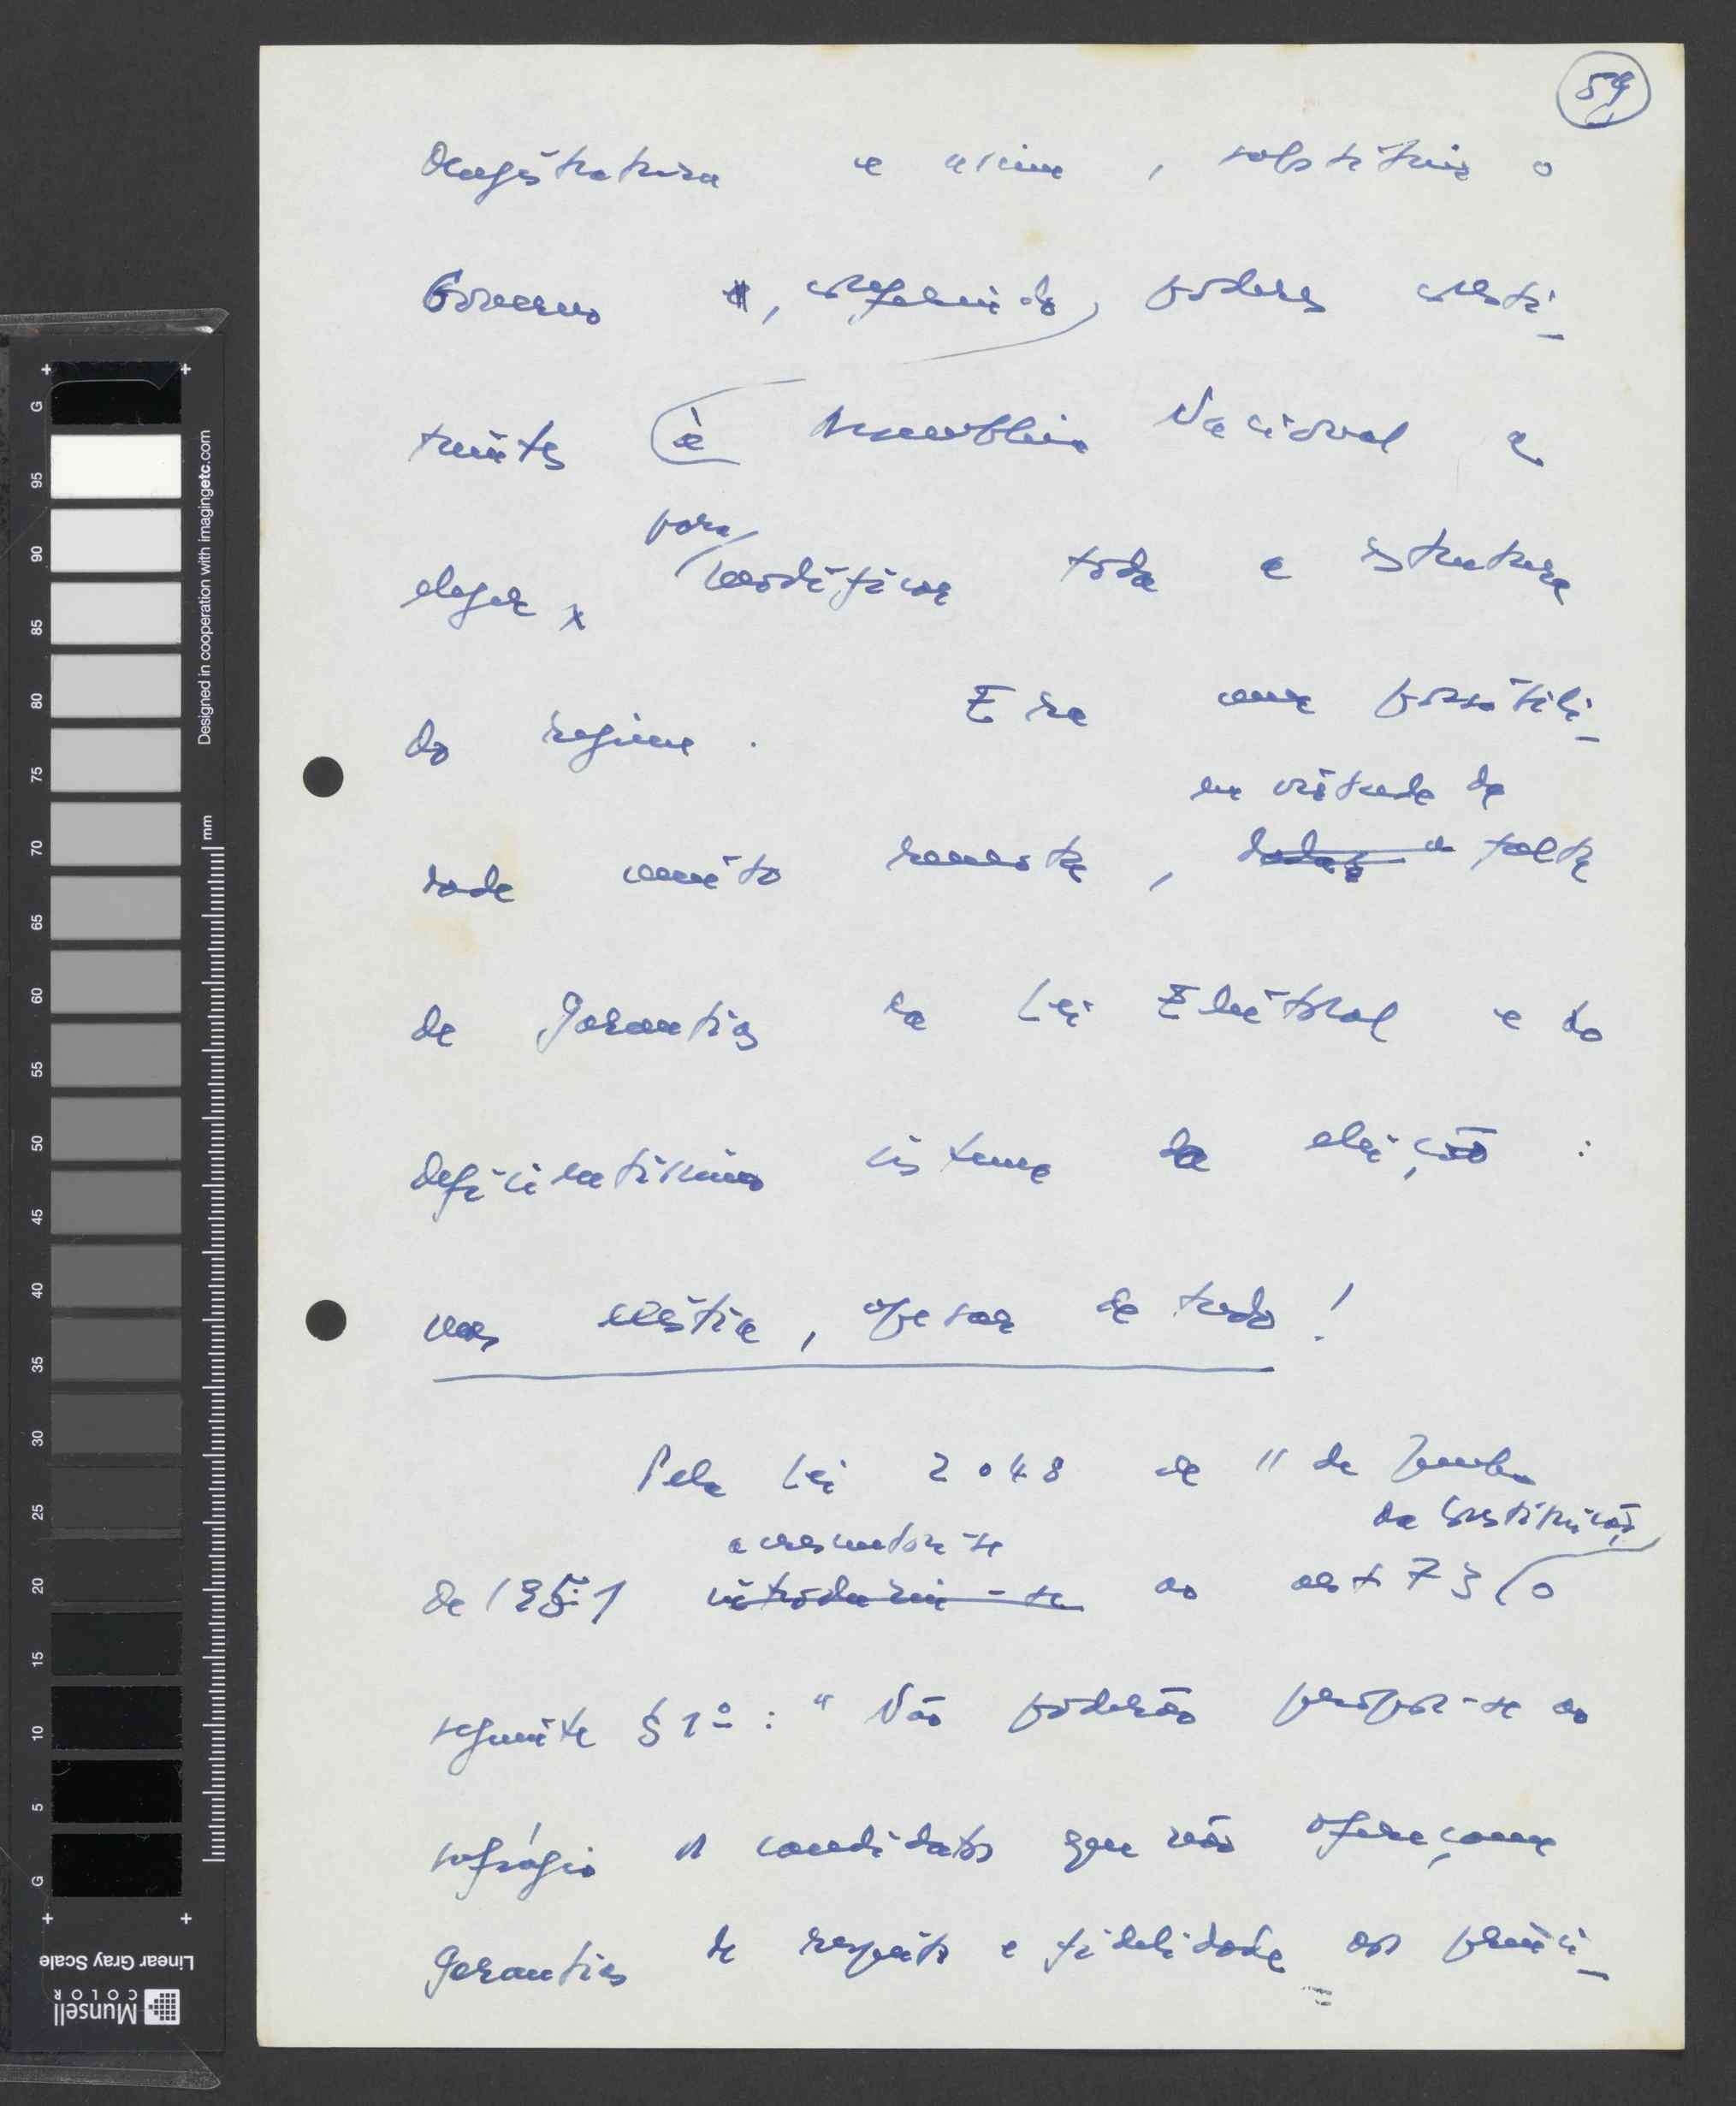 59
Magistratura e assim, substituir o
Governo, conferindo poderes consti-
tuintes à Assembleia Nacional a
eleger x para modificar toda a estrutura
do regime. Era uma possibili-
dade muito remota, em virtude da falta
de garantias da Lei Eleitoral e do
deficientissimo sistema de eleição:
mas existia, apesar de tudo!
Pela Lei 2048 de 11 de Junho
da Constituição
de 1951 acrescentou-se ao art 73 o
introduziu-se
seguinte § 1º: "Não poderão propor-se ao
sufrágio os candidatos que não ofereçam
garantias de respeito e fidelidade aos princi-
G 95 90 85 80 75 70 65 60 55 50 45 40 35 30 25 20 15 10 5 G
mm
Designed in cooperation with imagingetc.com
Linear Gray Scale
Munsell
COLOR